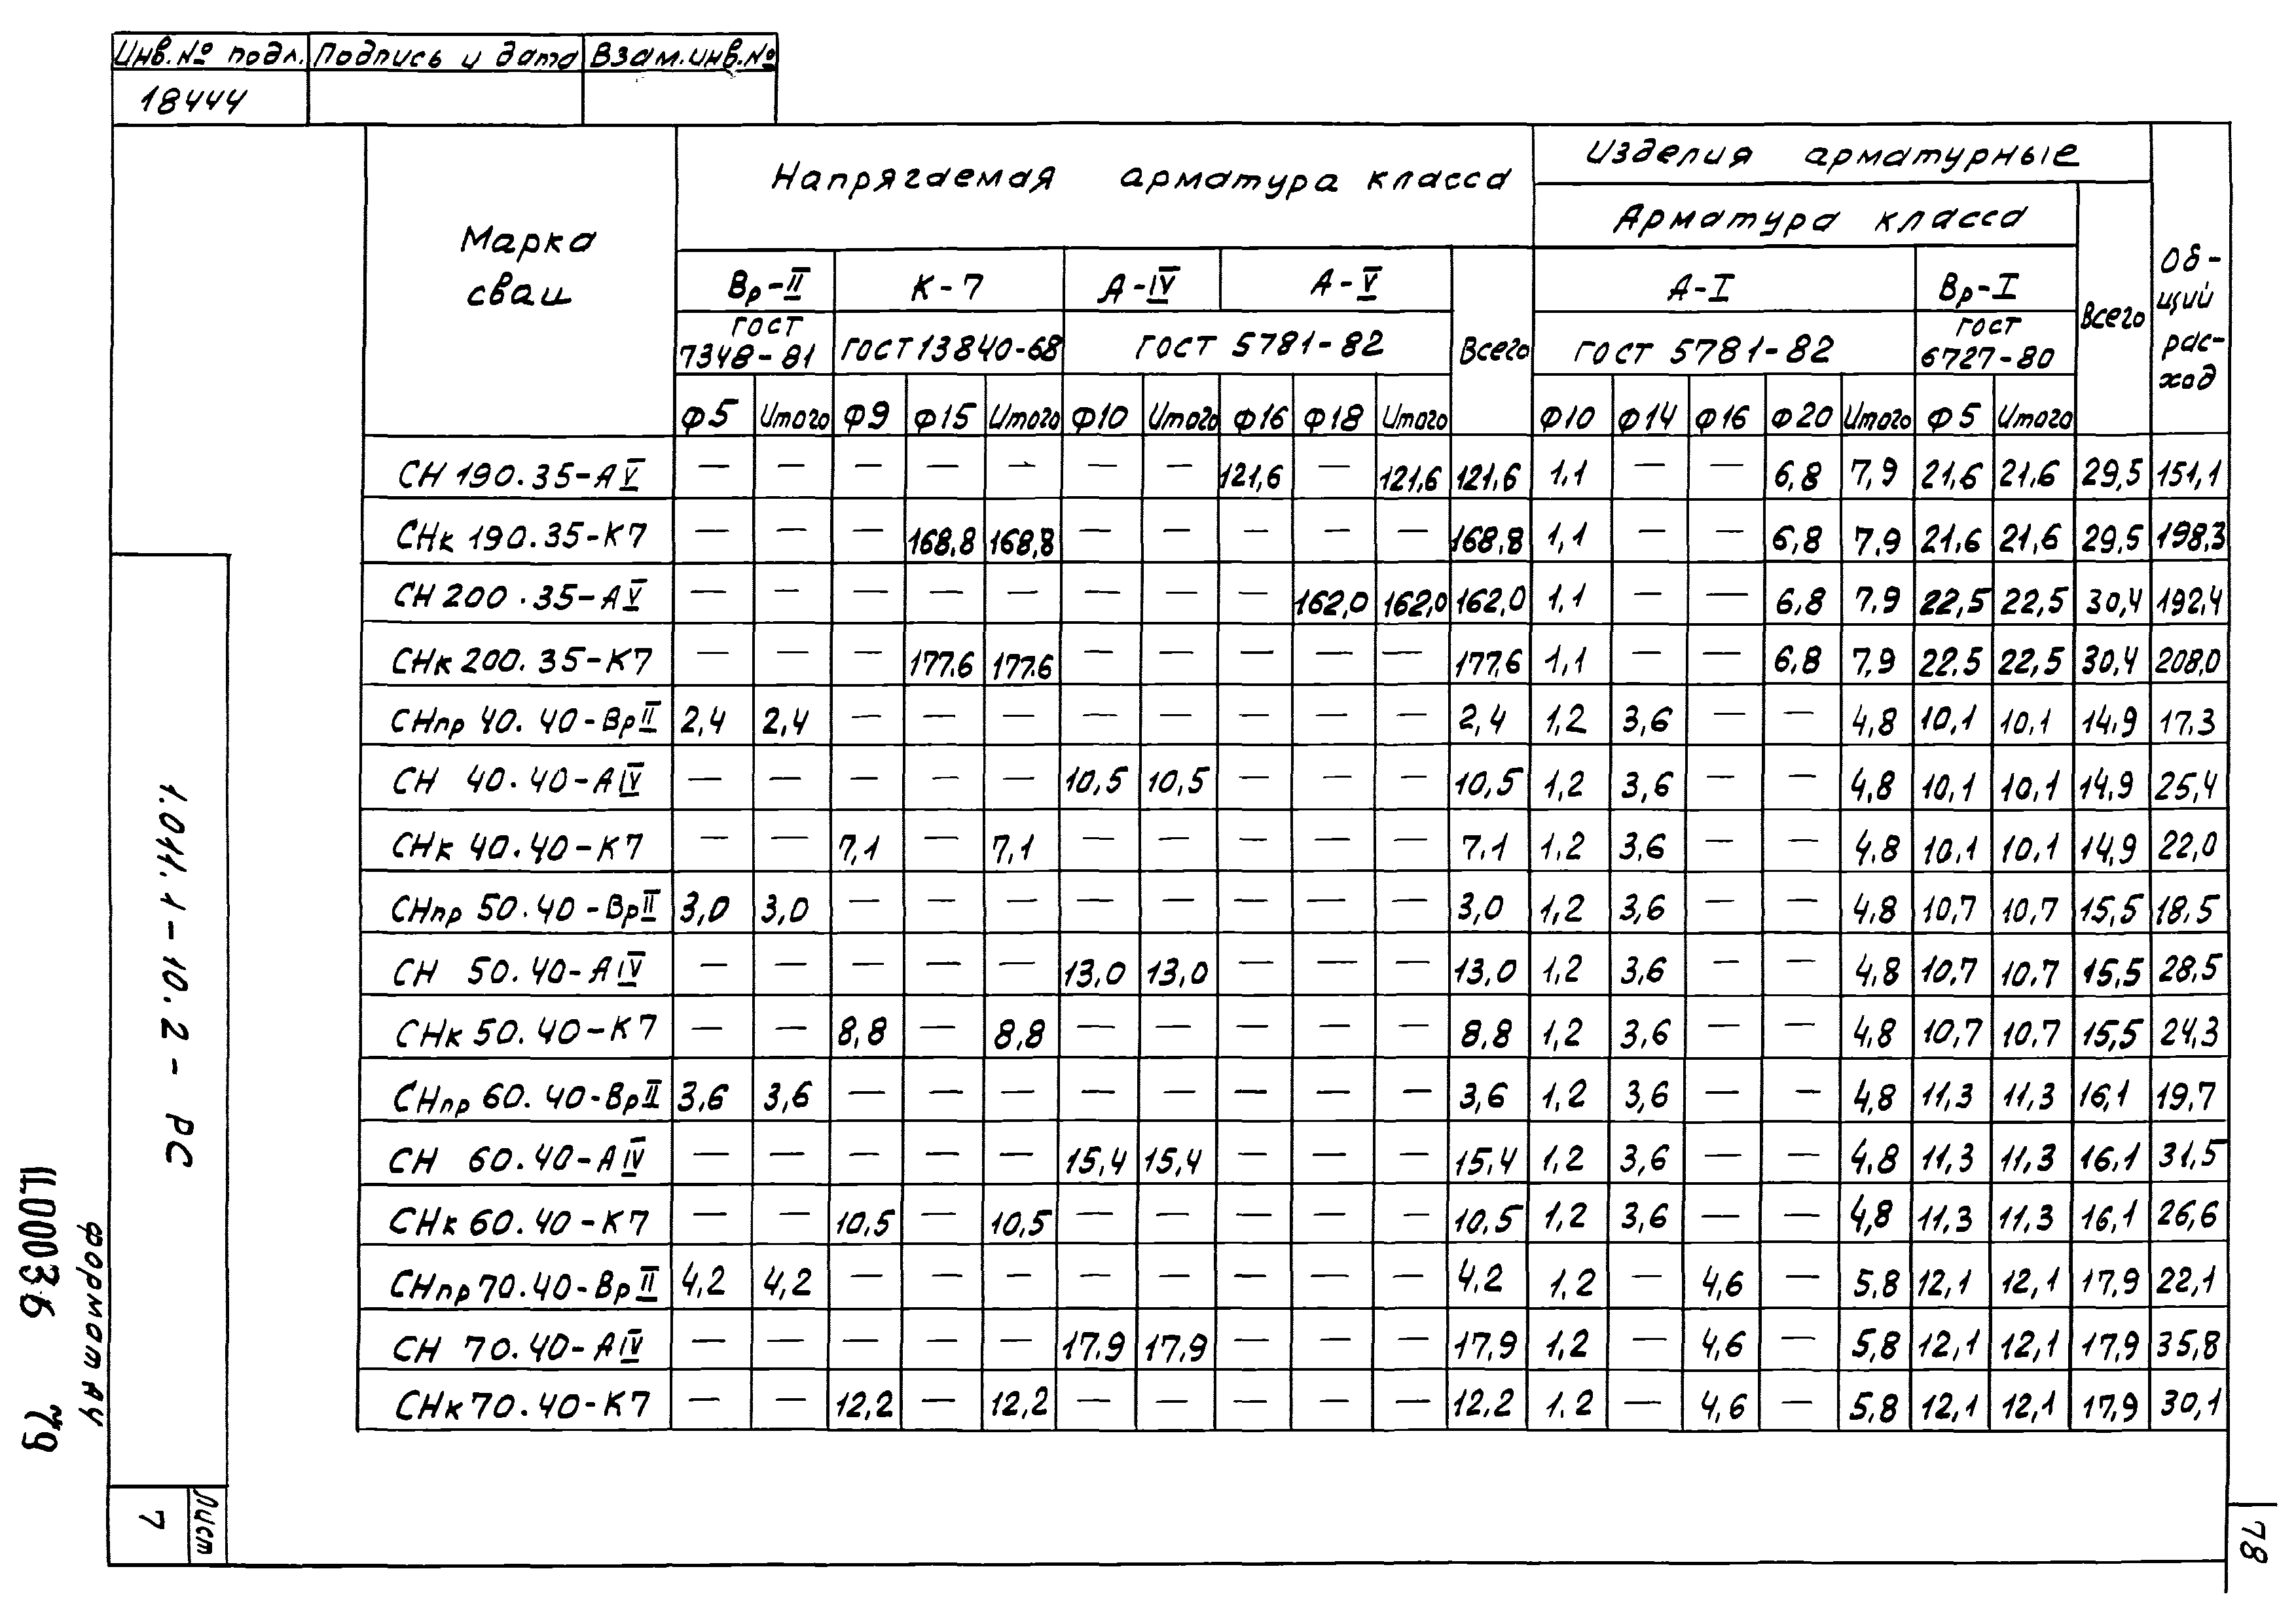 Инв.№ подл. Подпись и дата Взам.инв.№
18444
Марка сваи
Напрягаемая арматура класса
Изделия арматурные
Арматура класса
Общий расход
Вр-II К-7 А-IV А-V Всего А-I Вр-I Всего
ГОСТ 7348-81 ГОСТ 13840-68 ГОСТ 5781-82 ГОСТ 5781-82 ГОСТ 6727-80
Ф5 Итого Ф9 Ф15 Итого Ф10 Итого Ф16 Ф18 Итого Ф10 Ф14 Ф16 Ф20 Итого Ф5 Итого
СН 190.35-АV — — — — — — — 121,6 — 121,6 121,6 1,1 — — 6,8 7,9 21,6 21,6 29,5 151,1
СНк 190.35-К7 — — — 168,8 168,8 — — — — — 168,8 1,1 — — 6,8 7,9 21,6 21,6 29,5 198,3
СН 200.35-АV — — — — — — — — 162,0 162,0 162,0 1,1 — — 6,8 7,9 22,5 22,5 30,4 192,4
СНк 200.35-К7 — — — 177,6 177,6 — — — — — 177,6 1,1 — — 6,8 7,9 22,5 22,5 30,4 208,0
СНпр 40.40-ВрII 2,4 2,4 — — — — — — — — 2,4 1,2 3,6 — — 4,8 10,1 10,1 14,9 17,3
СН 40.40-АIV — — — — — 10,5 10,5 — — — 10,5 1,2 3,6 — — 4,8 10,1 10,1 14,9 25,4
СНк 40.40-К7 — — 7,1 — 7,1 — — — — — 7,1 1,2 3,6 — — 4,8 10,1 10,1 14,9 22,0
СНпр 50.40-ВрII 3,0 3,0 — — — — — — — — 3,0 1,2 3,6 — — 4,8 10,7 10,7 15,5 18,5
СН 50.40-АIV — — — — — 13,0 13,0 — — — 13,0 1,2 3,6 — — 4,8 10,7 10,7 15,5 28,5
СНк 50.40-К7 — — 8,8 — 8,8 — — — — — 8,8 1,2 3,6 — — 4,8 10,7 10,7 15,5 24,3
СНпр 60.40-ВрII 3,6 3,6 — — — — — — — — 3,6 1,2 3,6 — — 4,8 11,3 11,3 16,1 19,7
СН 60.40-АIV — — — — — 15,4 15,4 — — — 15,4 1,2 3,6 — — 4,8 11,3 11,3 16,1 31,5
СНк 60.40-К7 — — 10,5 — 10,5 — — — — — 10,5 1,2 3,6 — — 4,8 11,3 11,3 16,1 26,6
СНпр 70.40-ВрII 4,2 4,2 — — — — — — — — 4,2 1,2 — 4,6 — 5,8 12,1 12,1 17,9 22,1
СН 70.40-АIV — — — — — 17,9 17,9 — — — 17,9 1,2 — 4,6 — 5,8 12,1 12,1 17,9 35,8
СНк 70.40-К7 — — 12,2 — 12,2 — — — — — 12,2 1,2 — 4,6 — 5,8 12,1 12,1 17,9 30,1
1.011.1-10.2-РС
Лист
7
формат А4
Ц00036 79
78